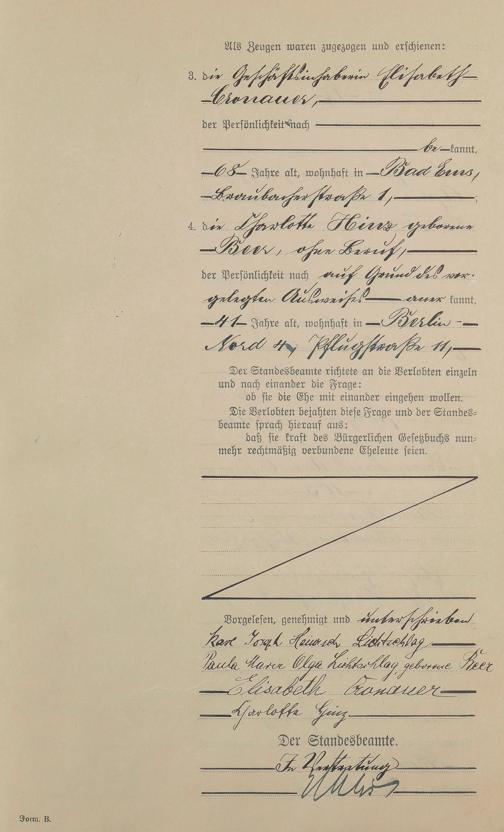 Als Zeugen waren zugezogen und erschienen:
3. die Geschäftsinhaberin Elisabeth
Cronauer,
der Persönlichkeit nach
be kannt,
68 Jahre alt, wohnhaft in Bad Ems,
Braubacherstraße 1,
4. die Charlotte Hinz geborene
Beer, ohne Beruf,
der Persönlichkeit nach auf Grund des vor-
gelegten Ausweises aner kannt,
41 Jahre alt, wohnhaft in Berlin-
Nord 4, Pflugstraße 11,
Der Standesbeamte richtete an die Verlobten einzeln
und nach einander die Frage:
ob sie die Ehe mit einander eingehen wollen.
Die Verlobten bejahten diese Frage und der Standes-
beamte sprach hierauf aus:
daß sie kraft des Bürgerlichen Gesetzbuchs nun-
mehr rechtmäßig verbundene Eheleute seien.
Vorgelesen, genehmigt und unterschrieben
Karl Josef Heinrich Lichtschlag
Paula Maria Olga Lichtschlag geborene Beer
Elisabeth Cronauer
Charlotte Hinz
Der Standesbeamte.
In Vertretung
Form. B.